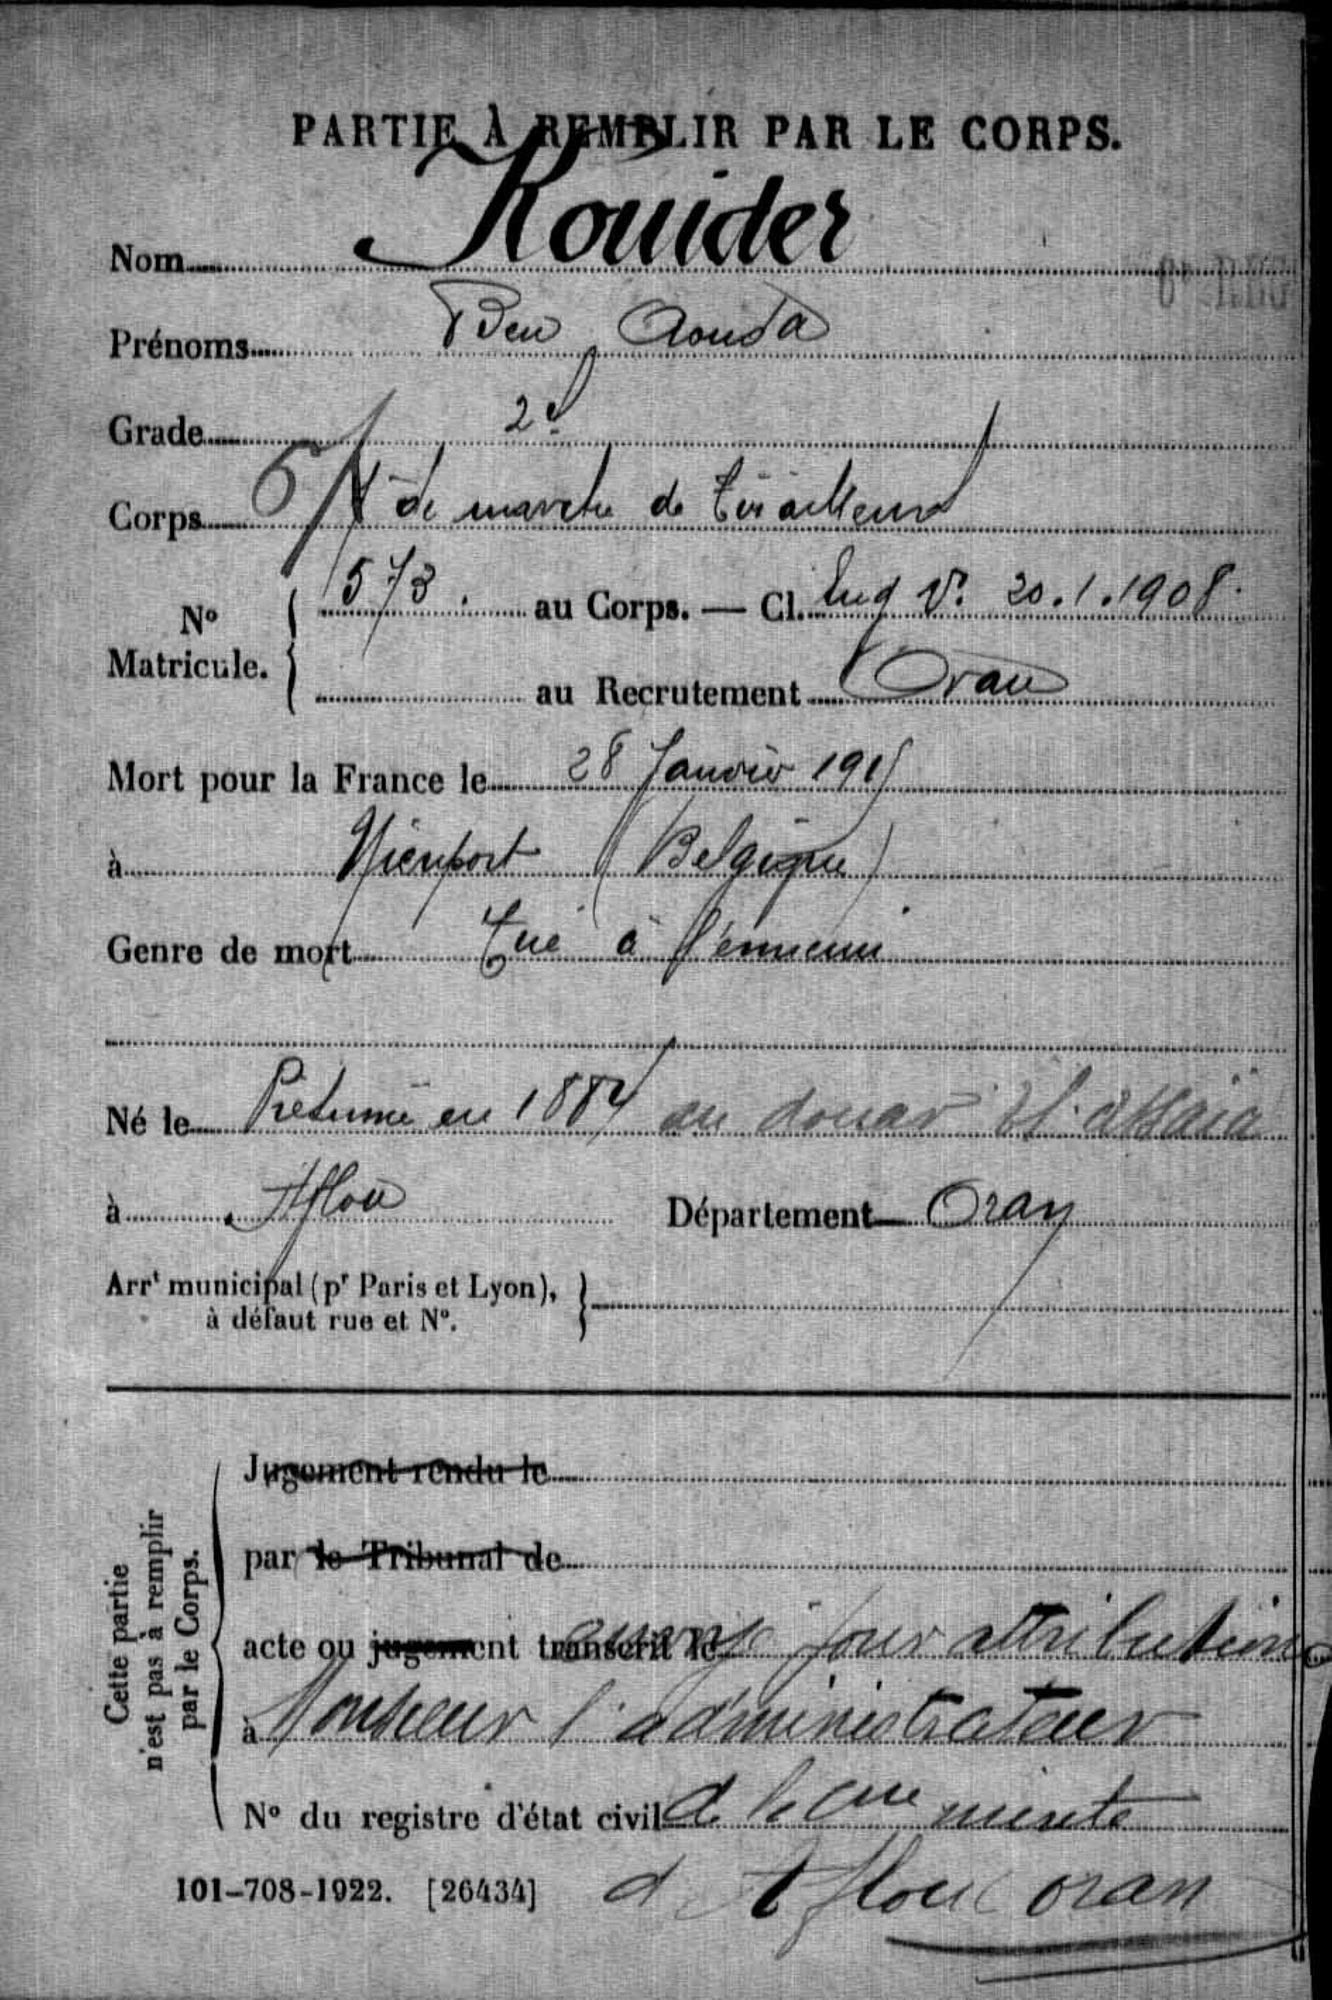 PARTIE À REMPLIR PAR LE CORPS.
Nom Kouider
Prénoms Ben Aouda
Grade 2e
Corps de marche de tirailleurs
573. au Corps. — Cl. Eng V. 20.1.1908.
No Matricule.
au Recrutement Oran
Mort pour la France le 28 Janvier 1915
à Nieuport (Belgique)
Genre de mort Tué à l'ennemi
Né le Présumé en 1884 au douar
à Aflou Département Oran
Arrt municipal (pr Paris et Lyon),
à défaut rue et No.
Cette partie n'est pas à remplir par le Corps.
Jugement rendu le
par le Tribunal de
acte ou jugement transcrit le pour attribution
à Monsieur l'administrateur
No du registre d'état civil de la cne mixte
101-708-1922. [26434] d'Aflou Oran